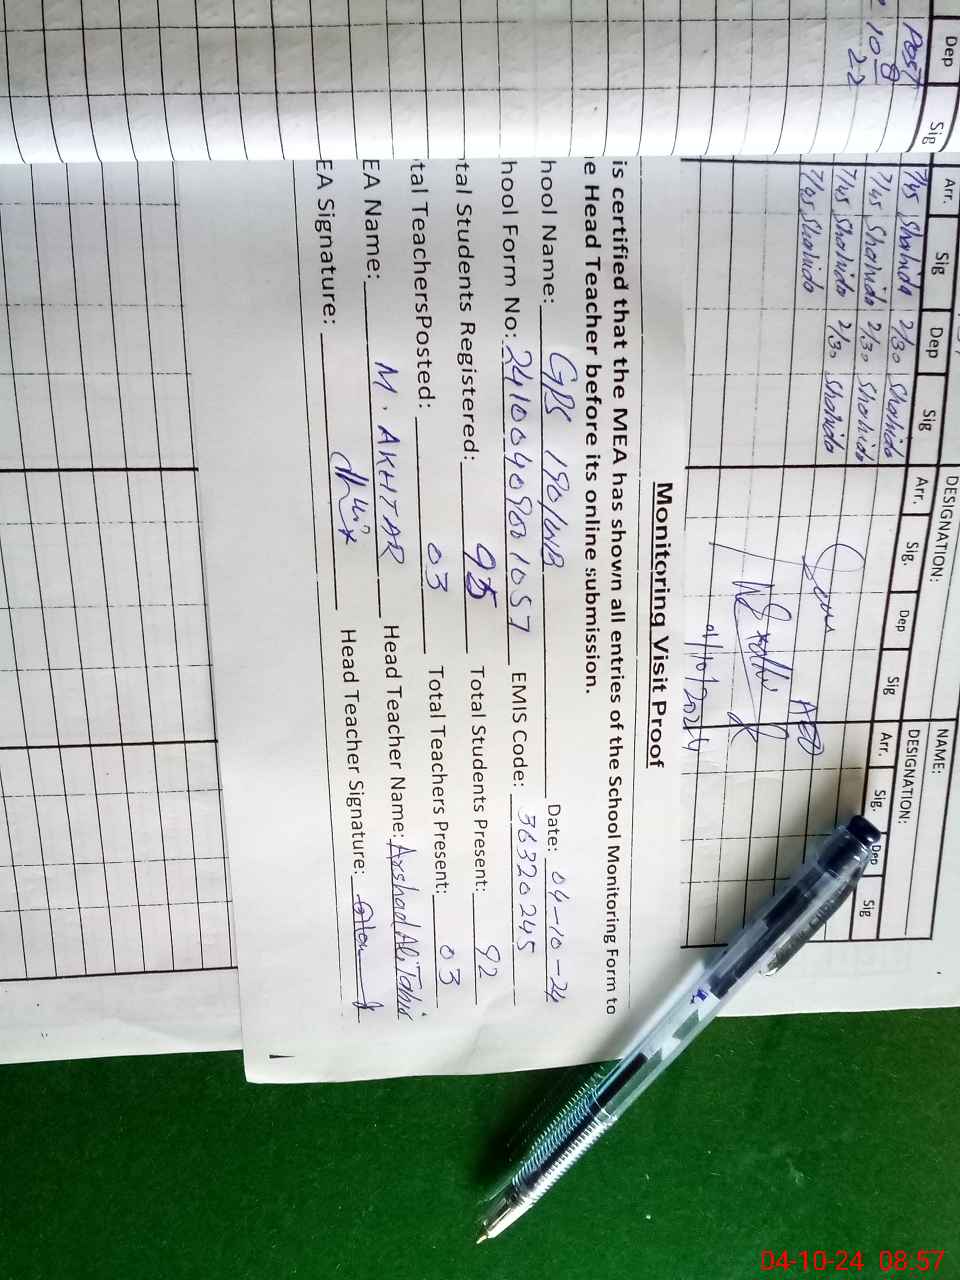 Dep
Sig
Post
10 8
22
Arr. Sig Dep Sig
7/45 Shahida 2/30 Shahida
7/45 Shahida 2/30 Shahida
7/45 Shahida 2/30 Shahida
7/45 Shahida
DESIGNATION:
Arr. Sig. Dep Sig
AEO
01/10/2024
NAME:
DESIGNATION:
Arr. Sig. Dep Sig
Monitoring Visit Proof
is certified that the MEA has shown all entries of the School Monitoring Form to
e Head Teacher before its online submission.
hool Name: GPS 190/WB Date: 04-10-24
hool Form No: EMIS Code: 36320245
tal Students Registered: 95 Total Students Present: 92
tal TeachersPosted: 03 Total Teachers Present: 03
EA Name: M. AKHTAR Head Teacher Name: Arshad Ali Tahir
EA Signature: Head Teacher Signature:
04-10-24 08:57